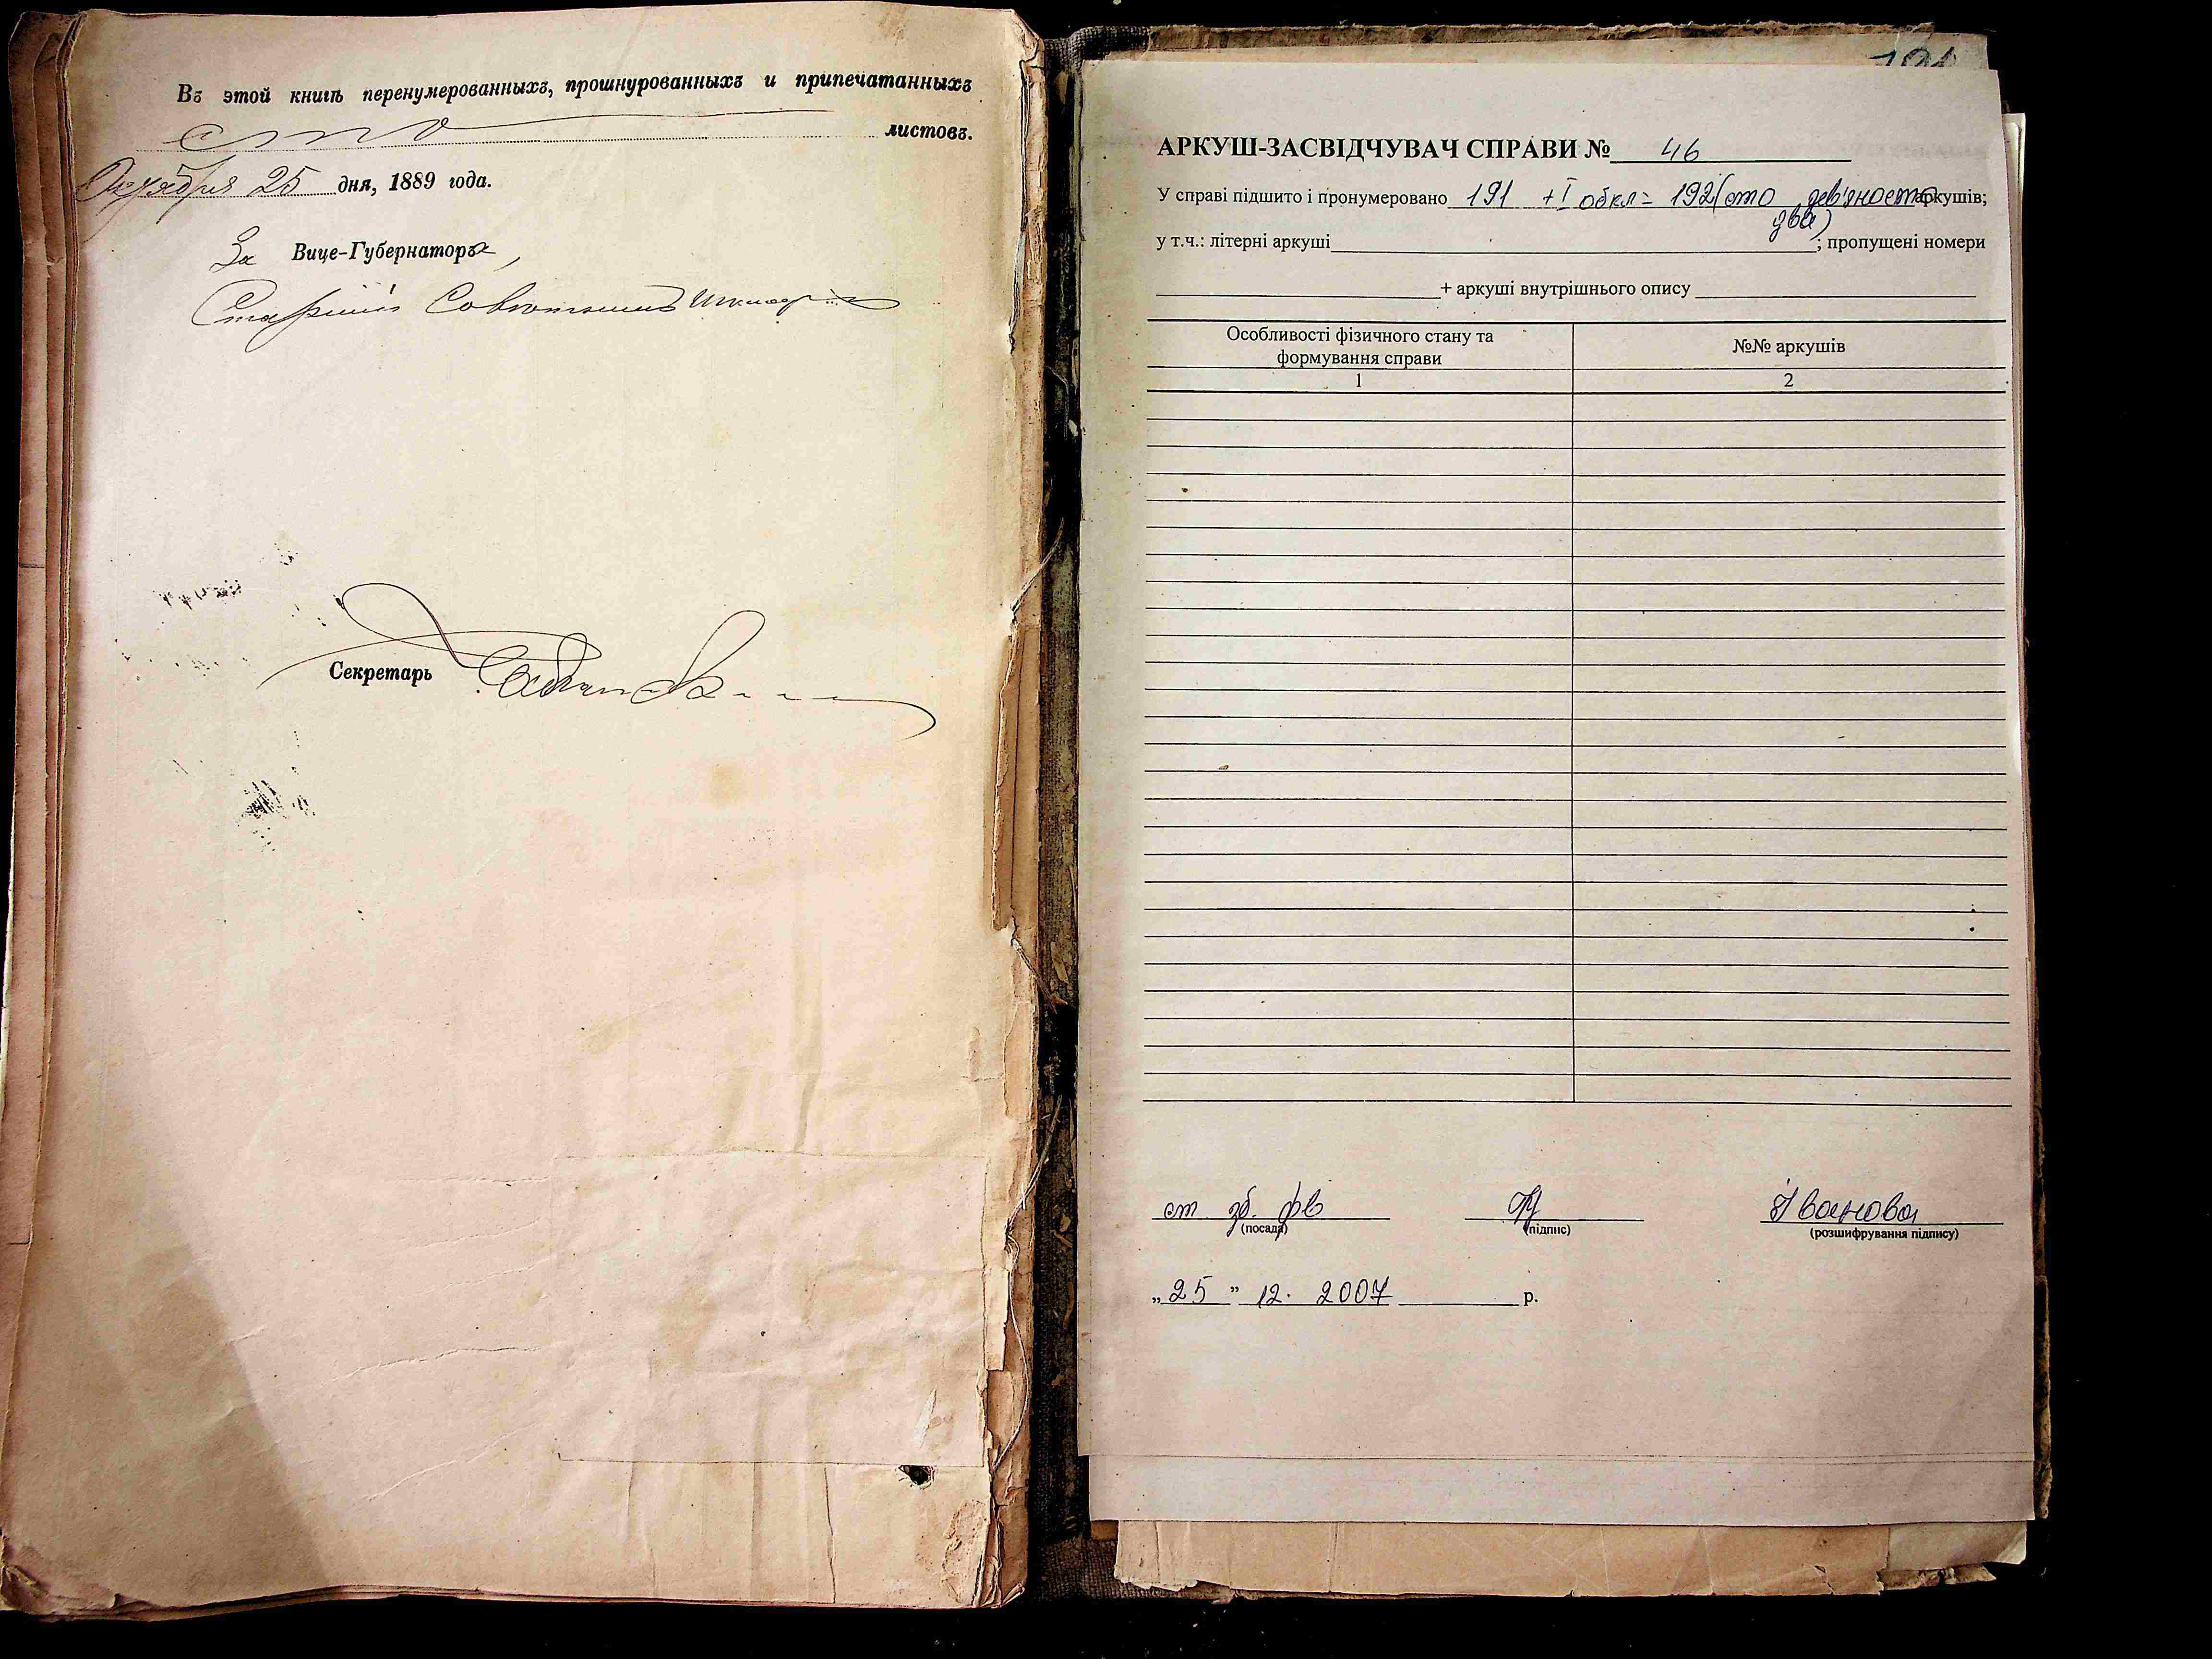 Въ этой книгѣ перенумерованныхъ, прошнурованныхъ и припечатанныхъ
сто листовъ.
Октября 25 дня, 1889 года.
За Вице-Губернатора,
Старшій Совѣтникъ
Секретарь
191
АРКУШ-ЗАСВІДЧУВАЧ СПРАВИ № 46
У справі підшито і пронумеровано 191 + I обкл = 192 (сто дев'яносто аркушів;
два)
у т.ч.: літерні аркуші ; пропущені номери
+ аркуші внутрішнього опису
Особливості фізичного стану та
формування справи
№№ аркушів
1 2
ст. зб. фв Іванова
(посада) (підпис) (розшифрування підпису)
„25" 12. 2007 р.